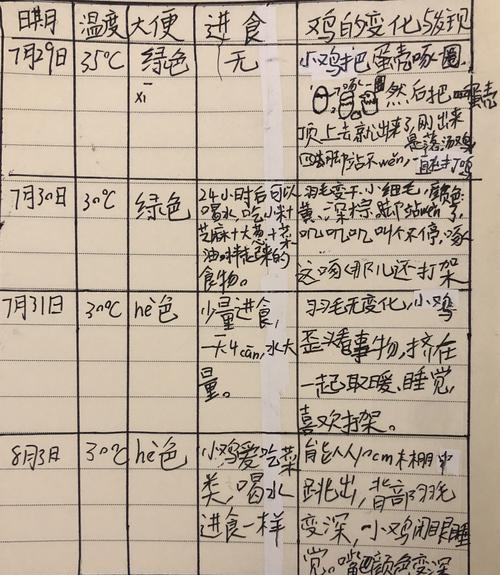 日期 温度 大便 进食 鸡的变化与发现
7月29日 35℃ 绿色 无 小鸡把蛋壳啄一圈。
xī 然后把蛋壳
顶上去就出来了,刚出来
是落汤鸡
脚站不wěn,
7月30日 30℃ 绿色 24小时后可以 羽毛变干,小细毛,颜色:
喝水,吃小米+ 黄、深棕,脚站wěn了,
芝麻+大葱+菜 叽叽叽叽叫个不停,啄
油拌起来的
食物。 这啄那儿还打架
7月31日 30℃ hè色 少量进食, 羽毛无变化,小鸡
一天4cān,水大 歪头看事物,挤在
量。 一起取暖、睡觉,
喜欢打架。
8月3日 30℃ hè色 小鸡爱吃菜 能从10cm木棚中
类,喝水 跳出,背部羽毛
进食一样 变深,小鸡闭眼睡
觉。嘴巴颜色变深